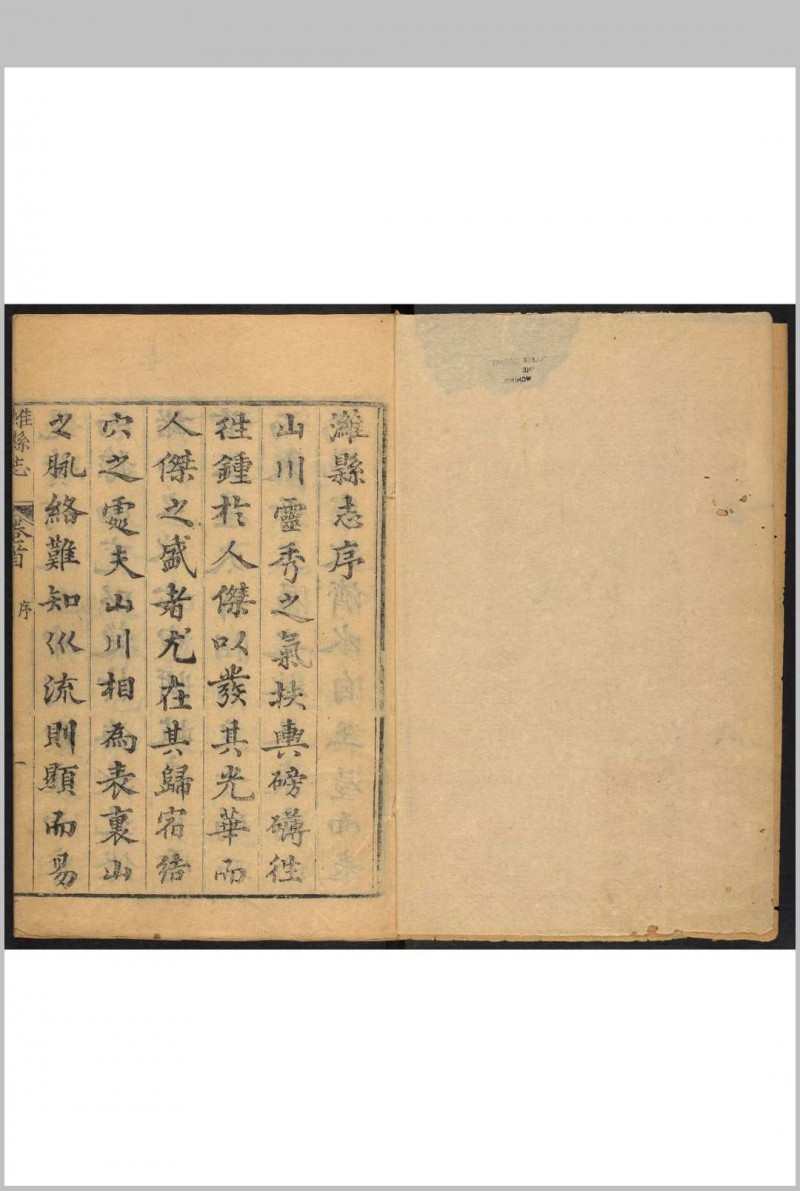 濰縣志序
山川靈秀之氣扶輿磅礴徃
徃鍾於人傑以發其光華而
人傑之盛者尤在其歸宿結
穴之處夫山川相為表裏山
之脉絡難知水流則顯而易
濰縣志 卷首 序 一